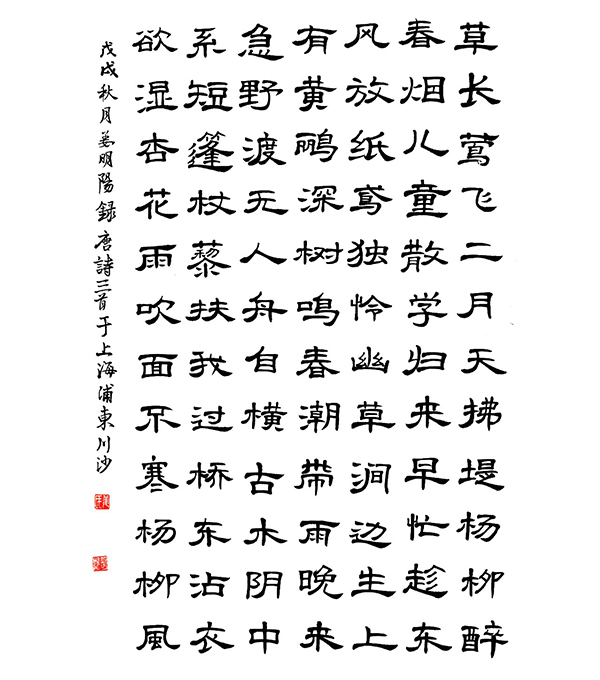 草长莺飞二月天拂堤杨柳醉
春烟儿童散学归来早忙趁东
风放纸鸢独怜幽草涧边生上
有黄鹂深树鸣春潮帶雨晚来
急野渡无人舟自横古木阴中
系短篷杖藜扶我过桥东沾衣
欲湿杏花雨吹面不寒杨柳風
戊戌秋月姜明陽録唐詩三首于上海浦東川沙